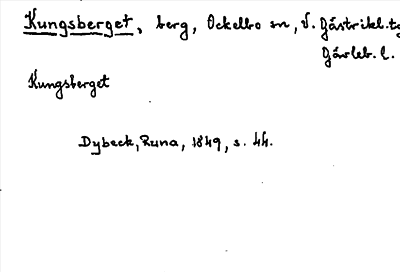 Kungsberget, berg, Ockelbo sn, V. Gästrikl. tg
Gävleb. l.
Kungsberget
Dybeck, Runa, 1849, s. 44.